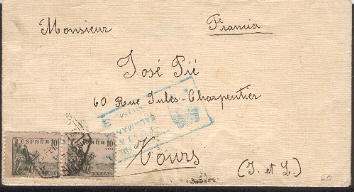 Monsieur Francia
José Pié
60 Rue Jules-Charpentier
Tours
(I. et L.)
ESPAÑA 10 ESPAÑA 10